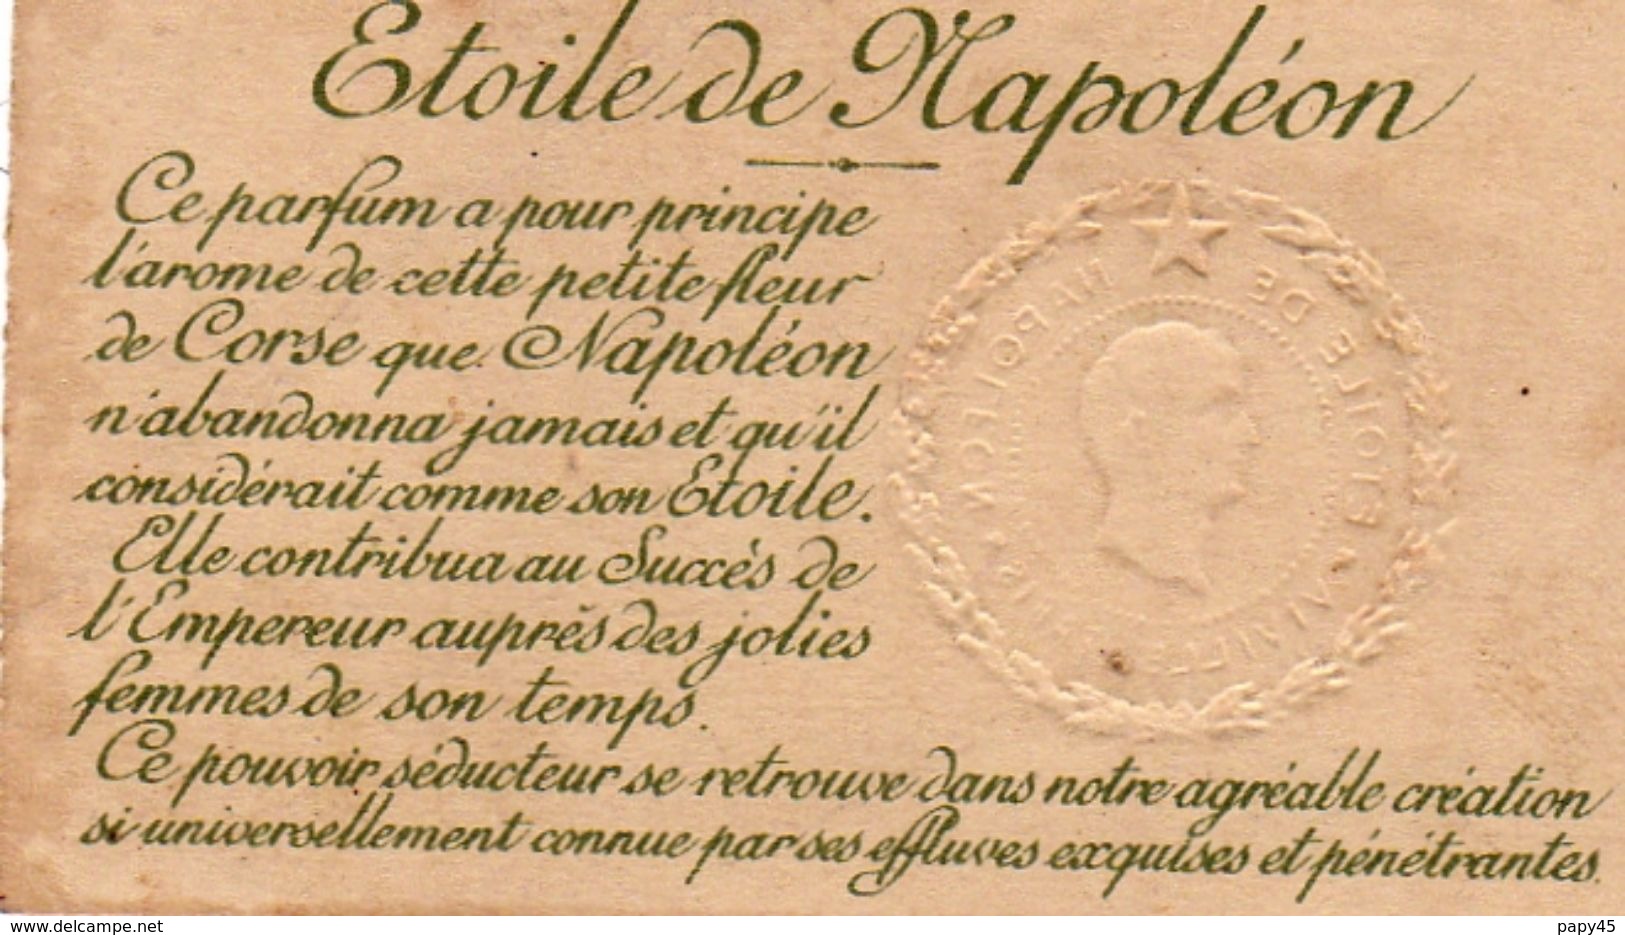 Etoile de Napoléon
Ce parfum a pour principe
l'arome de cette petite fleur
de Corse que Napoléon
n'abandonna jamais et qu'il
considérait comme son Etoile.
Elle contribua au Succés de
l'Empereur auprés des jolies
femmes de son temps.
Ce pouvoir séducteur se retrouve dans notre agréable création
si universellement connue par ses effluves exquises et pénétrantes.
ETOILE DE NAPOLEON
www.delcampe.net
papy45